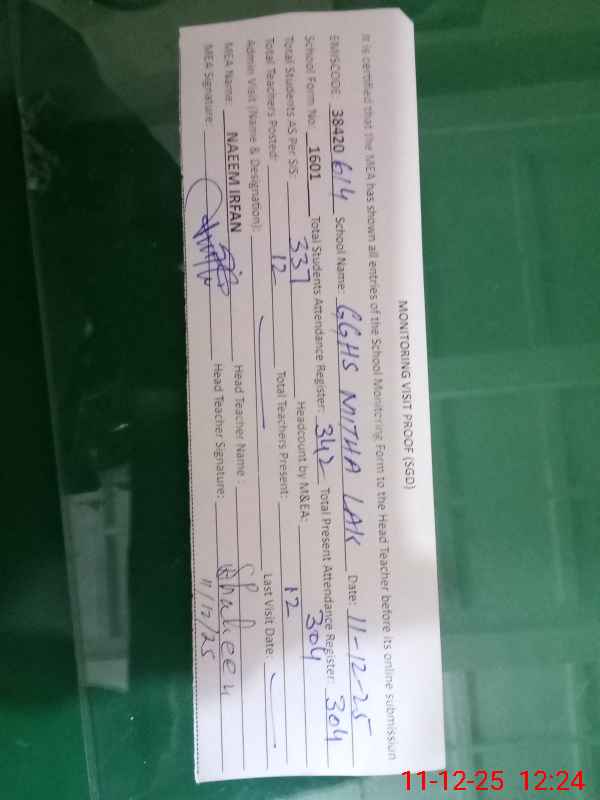 MONITORING VISIT PROOF (SGD)
It is certified that the MEA has shown all entries of the School Monitoring Form to the Head Teacher before its online submission
EMISCODE 38420614 School Name: GGHS MITHA LAK Date: 11-12-25
School Form No: 1601 Total Students Attendance Register: 342 Total Present Attendance Register: 304
Total Students AS Per SIS: 337 Headcount by M&EA: 304
Total Teachers Posted: 12 Total Teachers Present: 12
Admin Visit (Name & Designation): Last Visit Date:
MEA Name: NAEEM IRFAN Head Teacher Name :
MEA Signature: Head Teacher Signature: Shaheen
11/12/25
11-12-25 12:24